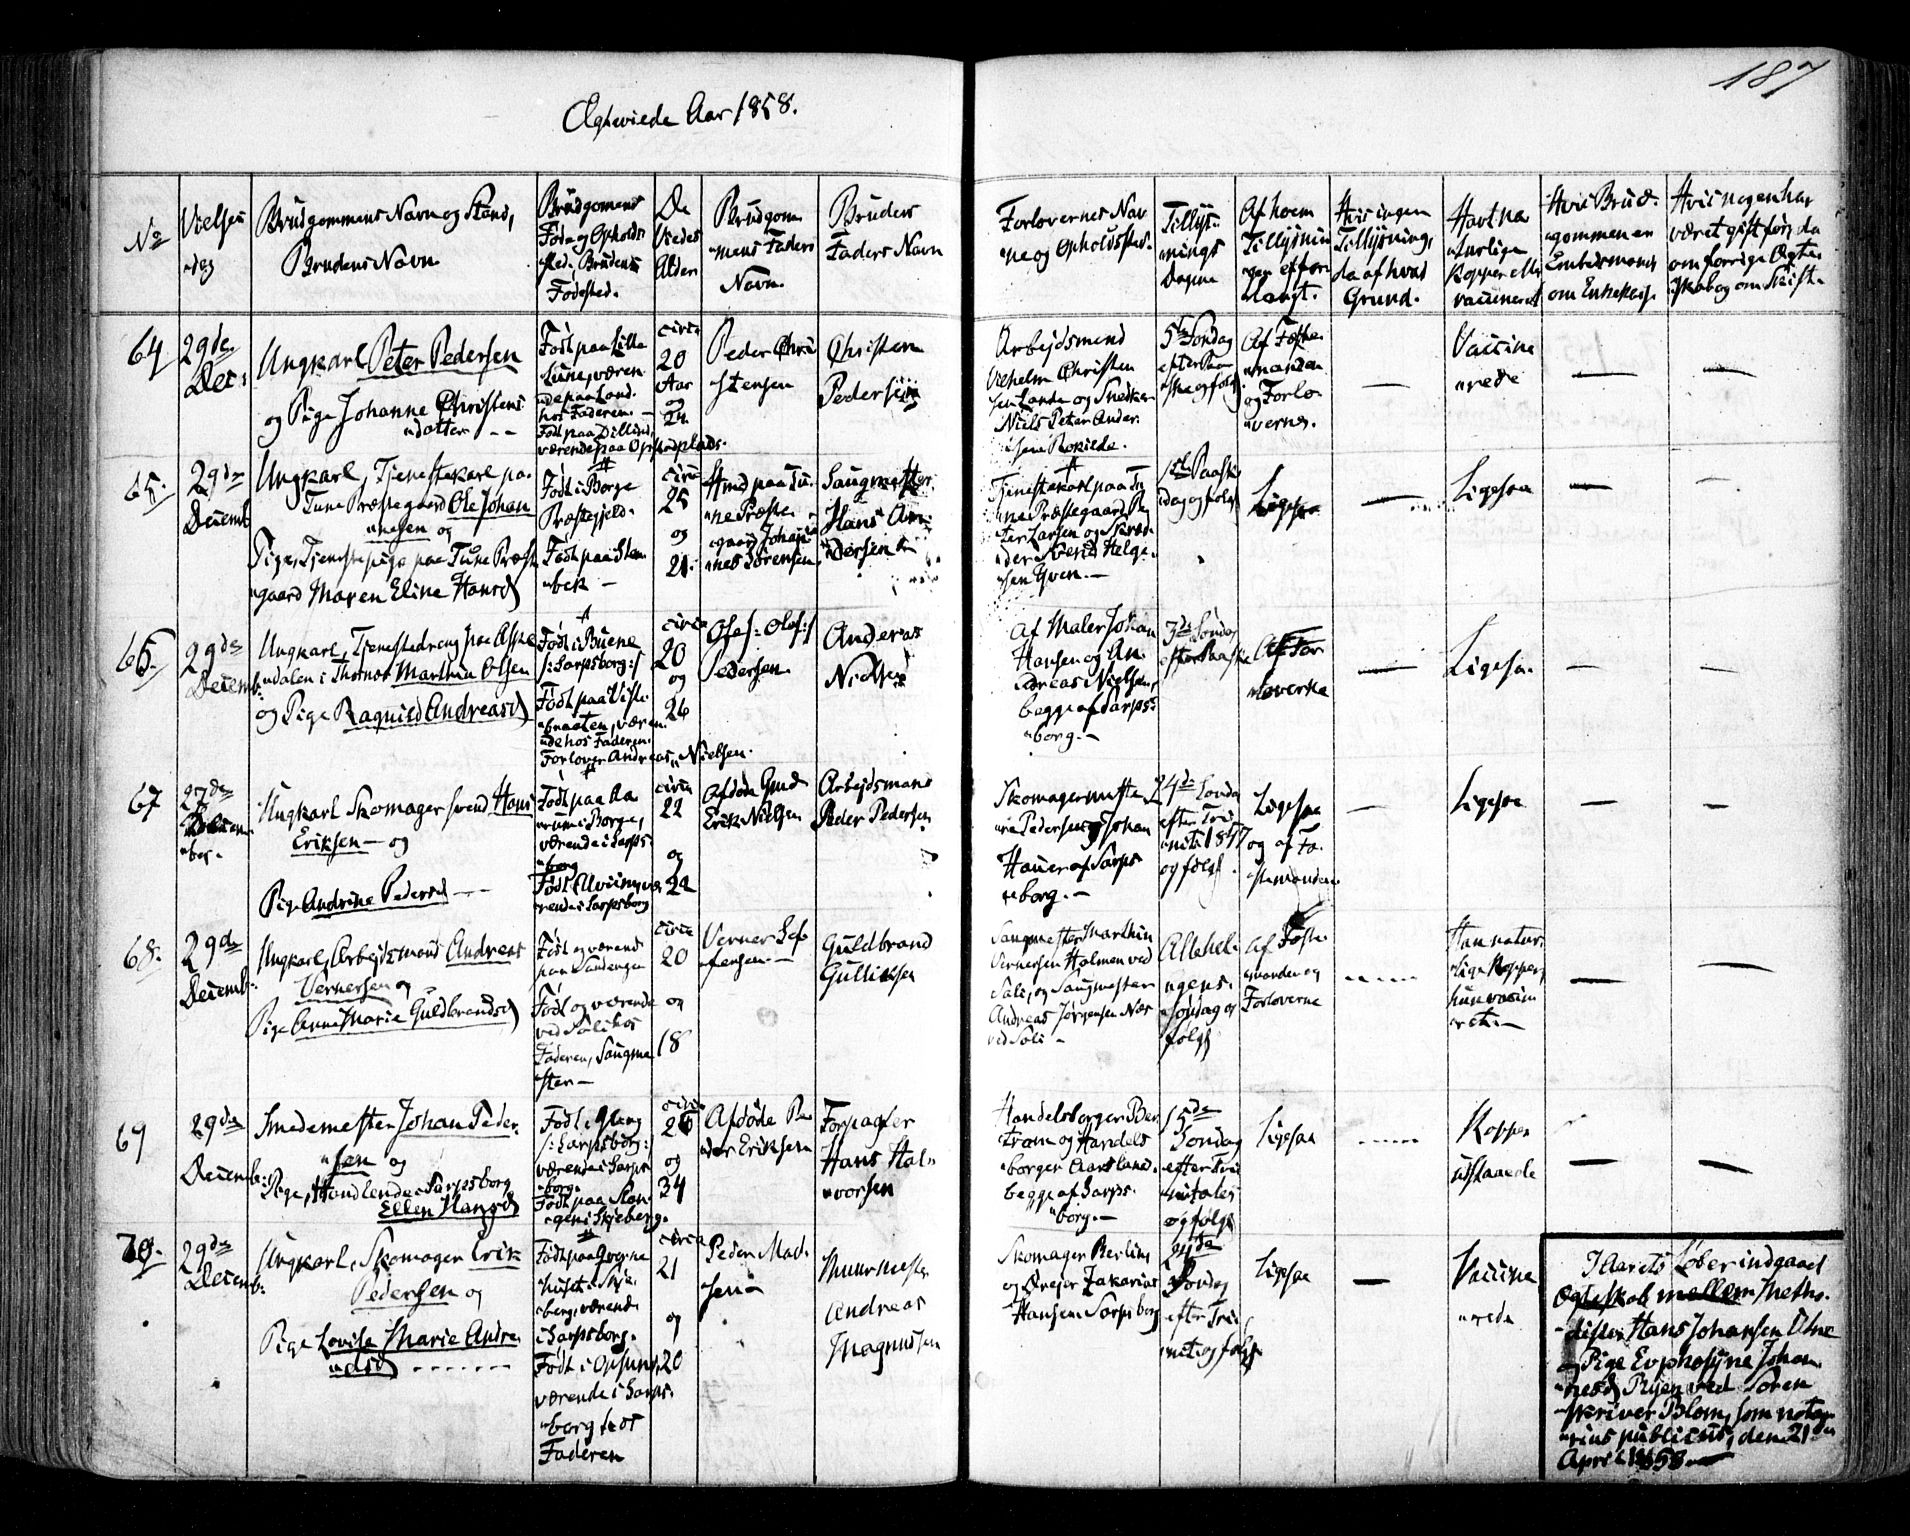 187
Ægteviede Aar 1858.
No
Vielses
dag
Brudgommens Navn og Stand,
Brudens Navn
Brudgomens
Føde og Opholds
sted. Brudens
Fødested.
De
Viedes
Alder
Brudgom
mens Faders
Navn.
Brudens
Faders Navn
Forlovernes Nav
ne og Opholdssted.
Tillys
nings
Dagene
Af hvem
Tillysnin
gen er for
langt.
Hvis ingen
Tillysning,
da af hvad
Grund.
Havt na
turlige
Kopper eller
vaccineret
Hvis Brud
gommen er
Embedsmand
om Enkekasse
Hvis nogen har
været gift før, da
om forrige Ægte
skab og om Skift
64
29de
Dec:
Ungkarl Peter Pedersen
og Pige Johanne Christens
datter
Født paa Lille
Tune, væren
de paa Land.
hos Faderen.
Født paa Dilling,
værende paa Opstadplads.
circa
20
Aar
og
24
Peder Chri
stensen
Christen
Pedersen
Arbejdsmend
Vilhelm Christen
sen Lande og Snedker
Niels Peter Ander
sen Rokilde.
5te Søndag
efter Paa
ske og følg.
Af Fæste
manden
og Forlo
verne.
—
Vaccine
rede
—
—
65.
29de
Decemb
Ungkarl, Tjenestekarl paa
Tune Præstegaard Ole Johan
nesen og
Pige, Tjenestepige paa Tune Præste
gaard Maren Eline Hansd
Født i Borge
Præstegjeld.
Født paa Sten
bek
circa
25
og
21.
Hmd paa Tu
ne Præste
gaard Johan
nes Sørensen
Saugmester
Hans An
dersen
Tjenestekarl paa Tu
ne Præstegaard Pe
ter Larsen og Skræd
der Svend Helge
sen Yven.
1ste Paaske
dag og følg
Ligesaa
—
Ligesaa
—
—
66.
29de
Decemb:
Ungkarl, Tjenestedreng paa Aspe
dalen i Thorsnæs Marthin Olsen
og Pige Ragnild Andreasd
Født i Buene
/: Sarpsborg :/
Født paa Viste
braaten, væren
de hos Faderen.
Forlover Andreas Nielsen.
circa
20
og
26
Ole /: Olaf :/
Pedersen
Andreas
Nielsen
Af Maler Johan
Hansen og An
dreas Nielsen,
begge af Sarps
borg.
3de Søndag
efter Paaske
Af For
loverne
—
Ligesaa
—
—
67
27de
Decem
ber.
Ungkarl Skomagersvend Hans
Eriksen og
Pige Andrine Pedersd
Født paa Aa
rum i Borge,
værende i Sarps
borg
værende i Sarpsborg
circa
22
og
22
Afdøde Gmd
Erik Nielsen
Arbejdsmand
Peder Pedersen
Skomagermester
Pedersen og Johan
Hauer af Sarps
borg.
24de Sønda
efter Tri
nit. 1857
og følg
Ligesaa
og af Fæ
stemanden
—
Ligesaa
—
—
68.
29de
Decemb:
Ungkarl, Arbejdsmand Andreas
Vernersen og
Pige Anne Marie Guldbrandsd
Født og værende
paa Sandengen
Født og værende
ved Soli hos
Faderen, Saugme
ster
circa
20
og
18
Verner Jef
fersen
Guldbrand
Gulliksen
Saugmester Marthin
Vernersen Holmen ved
Soli, og Saugmester
Andreas Jørgensen Næs
ved Soli
Allehel
gens
Søndag og
følg
Af Fæste
manden og
Forloverne
Han natur
lige Kopper,
hun vaccine
ret.
—
—
69
29de
Decemb:
Smedemester Johan Peder
sen og
Pige, Handlende i Sarpsborg
Ellen Hansd
Født i Gleng
/: Sarpsborg :/
værende i Sarps
borg.
Født paa Ston
egen i Skjeberg.
circa
26
og
34
Afdøde Pe
der Eriksen
Forpagter
Hans Hal
vorsen
Handelsborger Ber
tram og Handels
borger Aarsland.
begge af Sarps
borg.
15de
Søndag
efter Tri
nitatis
og følg
Ligesaa
Kopper
udstaaede
—
—
70.
29de
Decemb:
Ungkarl, Skomager Erik
Pedersen og
Pige Lovise Marie Andre
asd
Født paa Qverne
huset i Skje
berg, værende
i Sarpsborg.
Født i Opsund,
værende i Sarps
borg hos
Faderen
circa
21
og
20
Peder Mad
sen
Muurmester
Andreas
Magnussen
Skomager Berlin,
og Drejer Zakarias
Hansen Sarpsborg
24de
Søndag
efter Tri
nit. og følg.
Ligesaa
—
Vaccine
rede
I Aarets Løber indgaaet
Ægteskab mellem Metho
disten Hans Johansen Elne
og Pige Evphosyne Johan
nesd Ryen ved Soren
skriver Blom, som nota
rius publicus, den 21de
April 1858